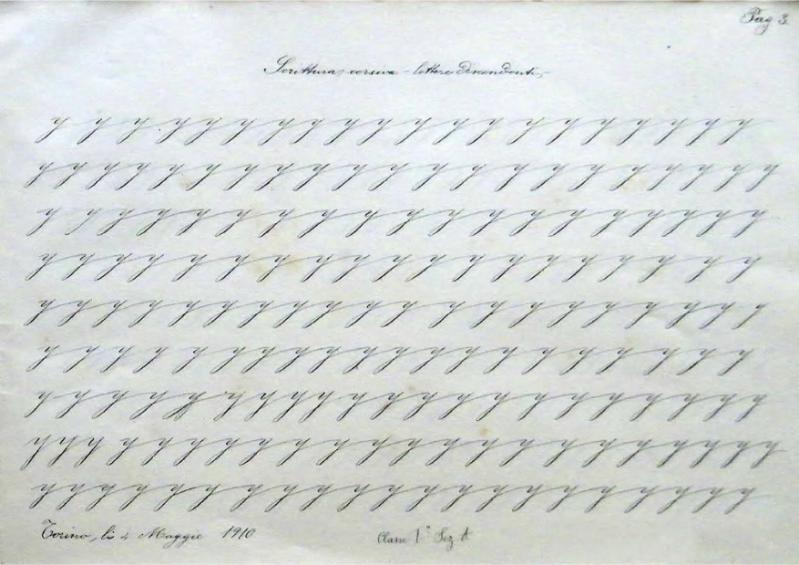 Pag 3.
Scrittura corsiva - lettere discendenti
y y y y y y y y y y y y y y y y y y y
y y y y y y y y y y y y y y y y y y y y
y y y y y y y y y y y y y y y y y y y
y y y y y y y y y y y y y y y y y y y
y y y y y y y y y y y y y y y y y y y y
y y y y y y y y y y y y y y y y y y y y
y y y y y y y y y y y y y y y y y y y y y
y y y y y y y y y y y y y y y y y y y y y y
y y y y y y y y y y y y y y y y y y y y y
Torino, li 4 Maggio 1910
Classe 1ª Sez A